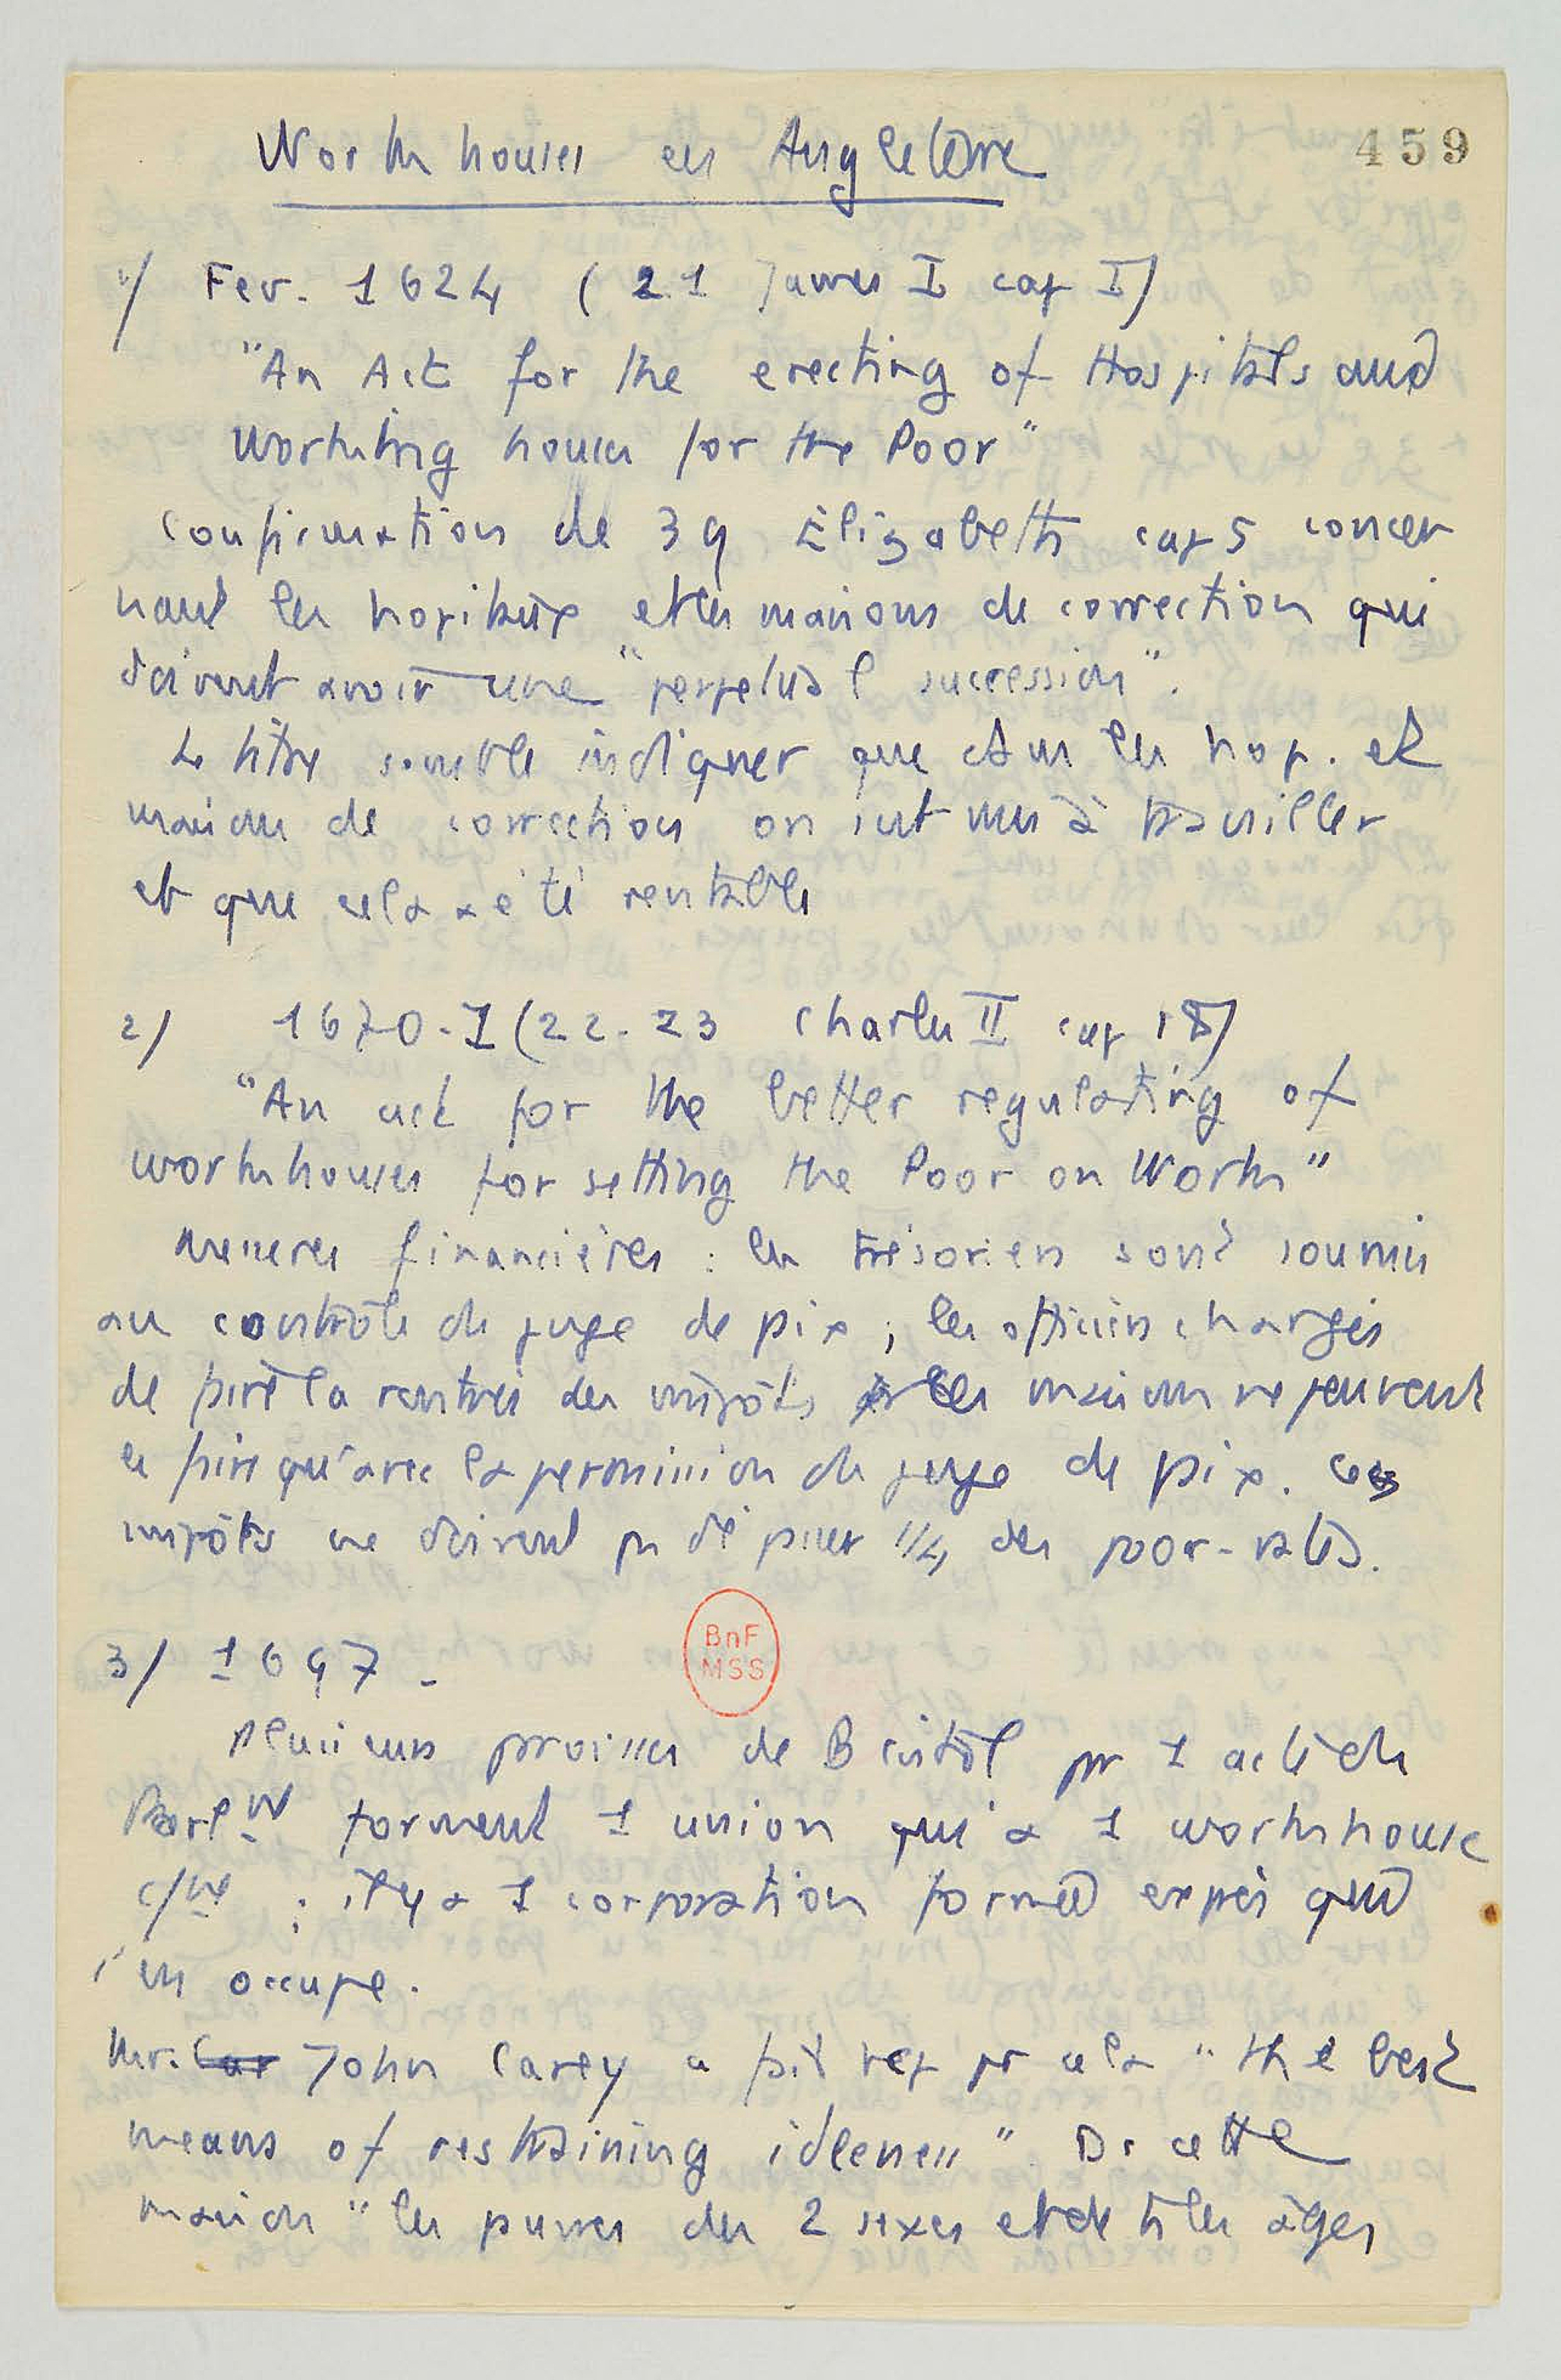 Workhouses en Angleterre
459
1/ Fev. 1624 (21 James I cap I)
"An Act for the erecting of Hospitals and
Workiting houses for the Poor"
Confirmation de 39 Elizabeth cap 5 concer
nant les hopitaux et les maisons de correction qui
doivent avoir une "perpetual succession".
Le titre semble indiquer que dans les hop. et
maisons de correction on s'est mis à travailler
et que cela a été rentable
2/ 1670-1 (22-23 Charles II cap 18)
"An act for the better regulating of
workhouses for setting the Poor on Work"
Mesures financières : les trésoriers sont soumis
au contrôle du juge de paix ; les officiers chargés
de faire la rentrée des impôts les maisons ne peuvent
le faire qu'avec la permission du juge de paix. Ces
impôts ne doivent pas dépasser 1/4 des poor-rates.
3/ 1697 -
BnF
MSS
Plusieurs paroisses de Bristol par 1 acte du
Parlt forment 1 union qui a 1 workhouse
c/ne ; il y a 1 corporation formée exprès qui
s'en occupe.
Mr. Car John Carey a fait rep pr cela "the best
means of restraining idleness". Ds cette
maison "les pauvres des 2 sexes et de ts les âges